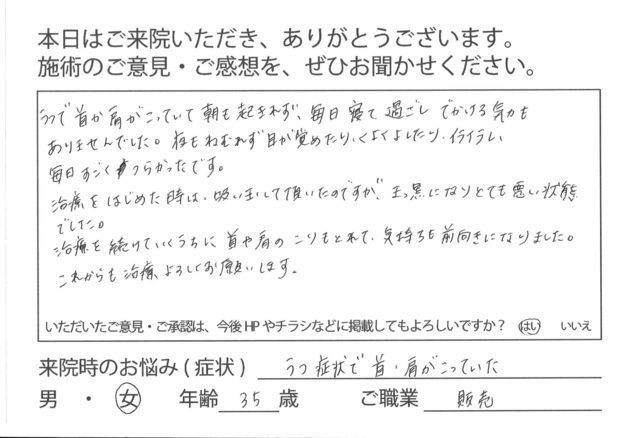 本日はご来院いただき、ありがとうございます。
施術のご意見・ご感想を、ぜひお聞かせください。
うつで首か肩がこっていて朝も起きれず、毎日寝て過ごしでかける気力も
ありませんでした。夜もねむれず目が覚めたり、くよくよしたり、イライラし
毎日すごくつらかったです。
治療をはじめた時は、吸い玉して頂いたのですが、まっ黒になりとても悪い状態
でした。
治療を続けていくうちに首や肩のこりもとれて、気持ちも前向きになりました。
これからも治療、よろしくお願いします。
いただいたご意見・ご承認は、今後HPやチラシなどに掲載してもよろしいですか? はい いいえ
来院時のお悩み(症状) うつ症状で首・肩がこっていた
男・女 年齢 35 歳 ご職業 販売